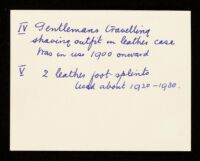 IV Gentlemans travelling
shaving outfit in leather case
was in use 1900 onward
V 2 leather foot splints
used about 1920-1930.